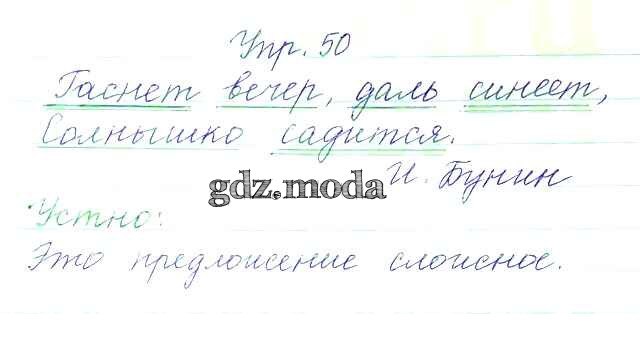 Упр. 50
Гаснет вечер, даль синеет,
Солнышко садится.
И. Бунин
gdz.moda
Устно:
Это предложение сложное.